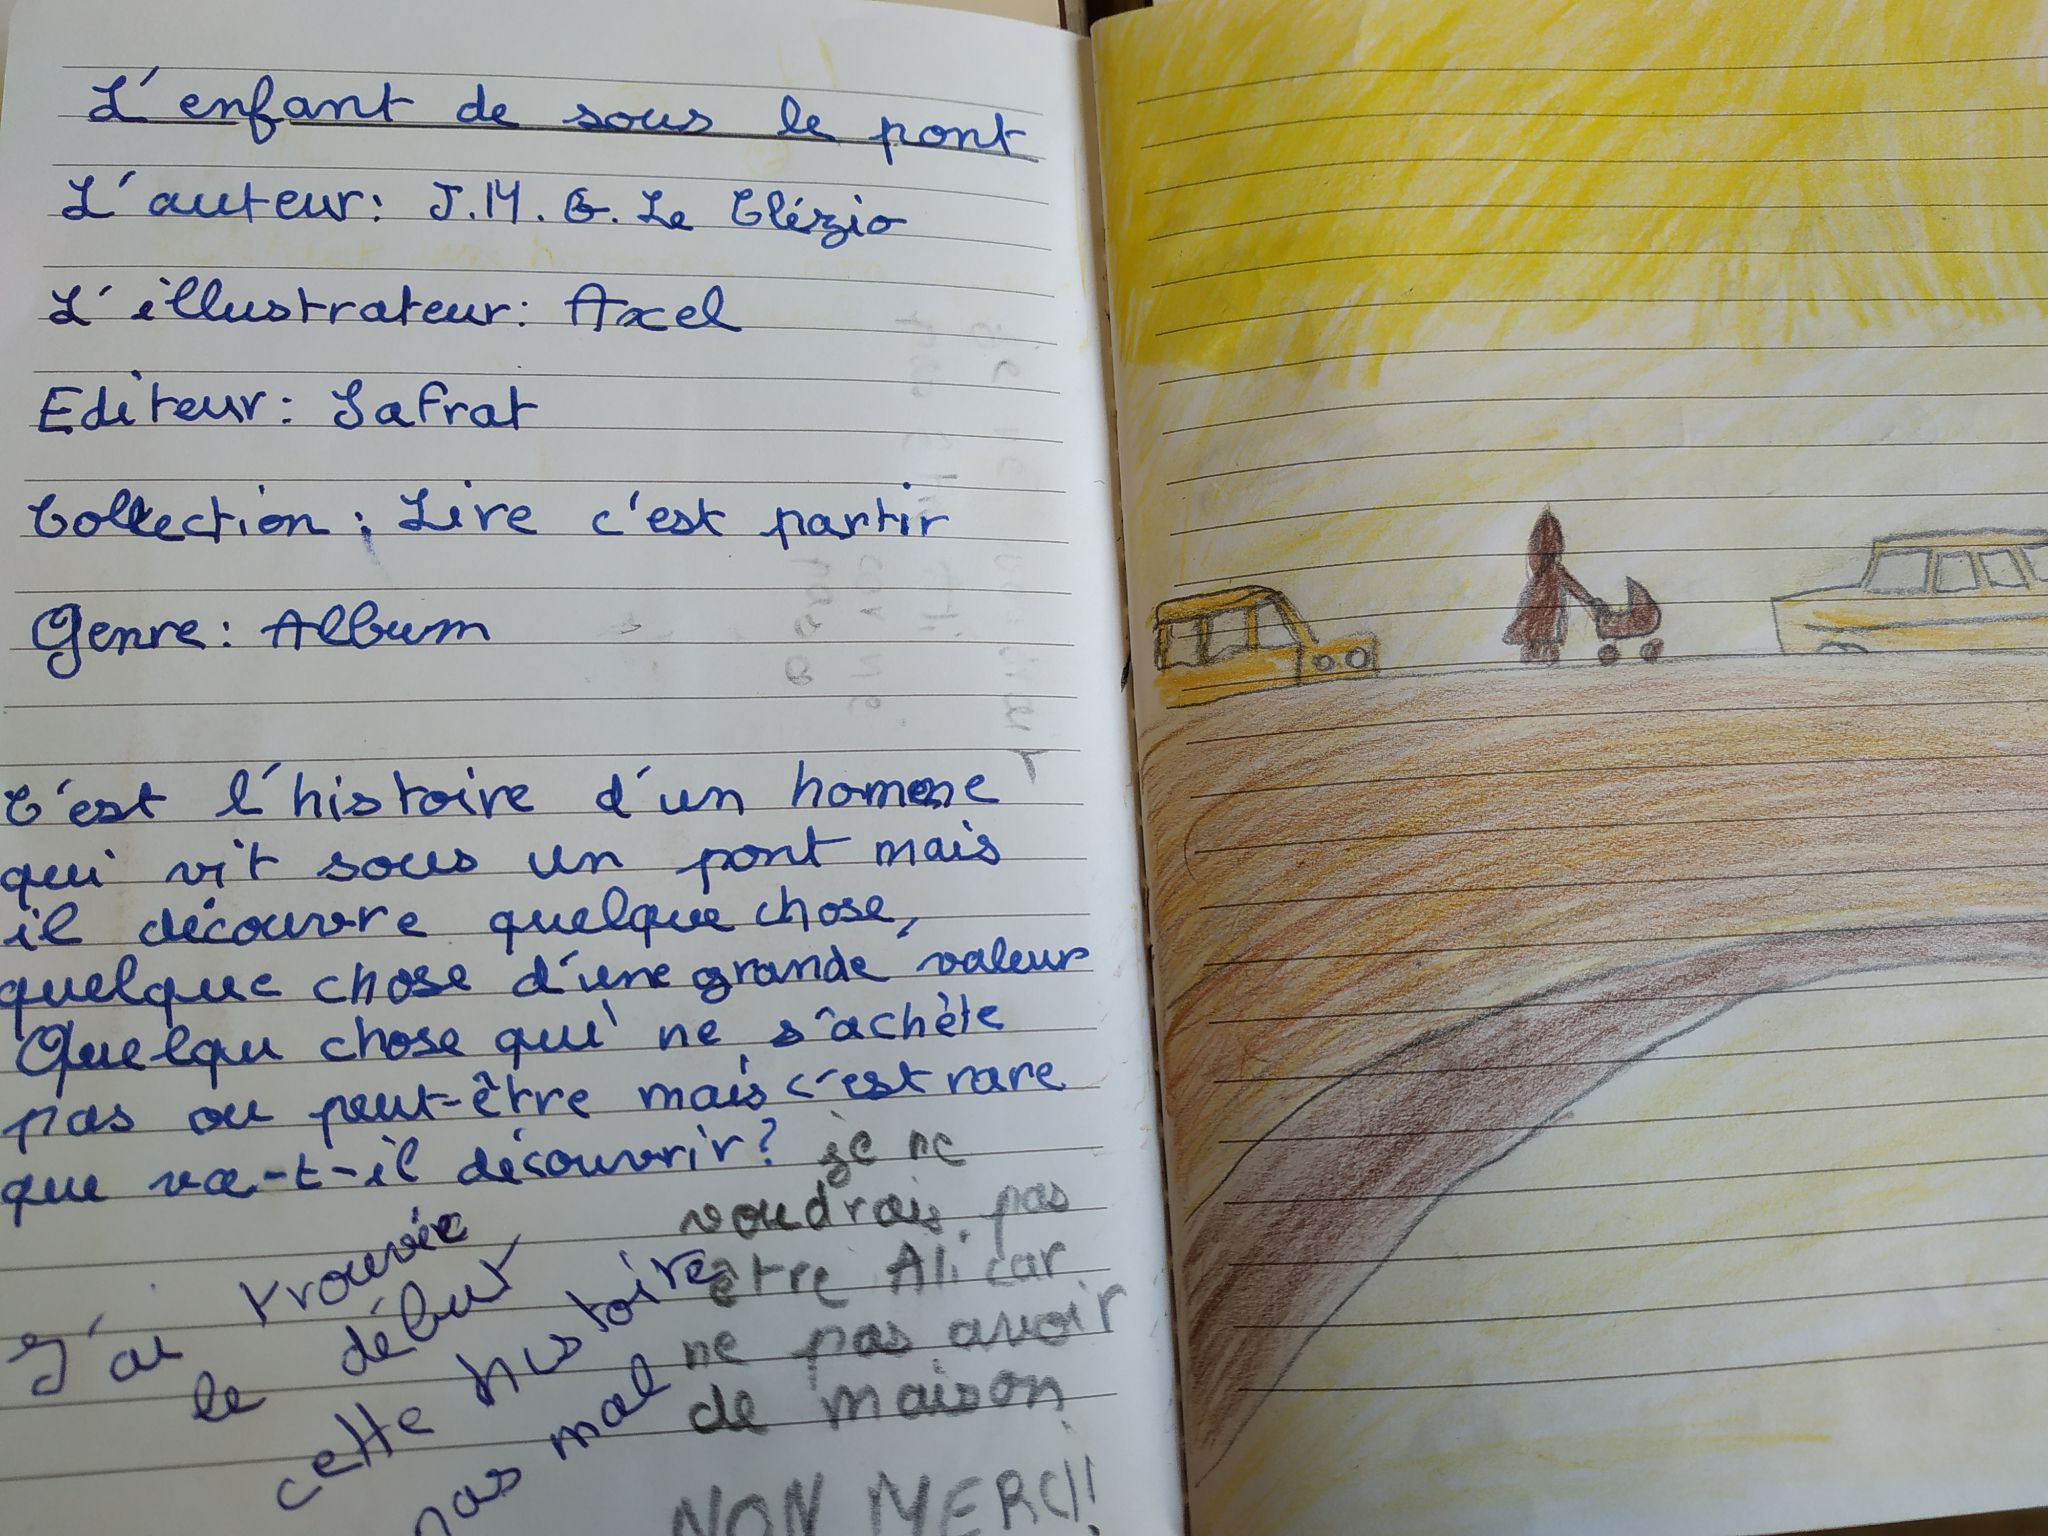 L'enfant de sous le pont
L'auteur: J.M.G. Le Clézio
L'illustrateur: Axel
Editeur: Safrat
Collection: Lire c'est partir
Genre: Album
C'est l'histoire d'un homme
qui vit sous un pont mais
il découvre quelque chose,
quelque chose d'une grande valeur
Quelqu chose qui ne s'achète
pas ou peut-être mais c'est rare
que va-t-il découvrir?
je ne
voudrais pas
être Ali car
ne pas avoir
de maison
NON MERCI!
J'ai trouvée
le début
cette histoire
pas mal